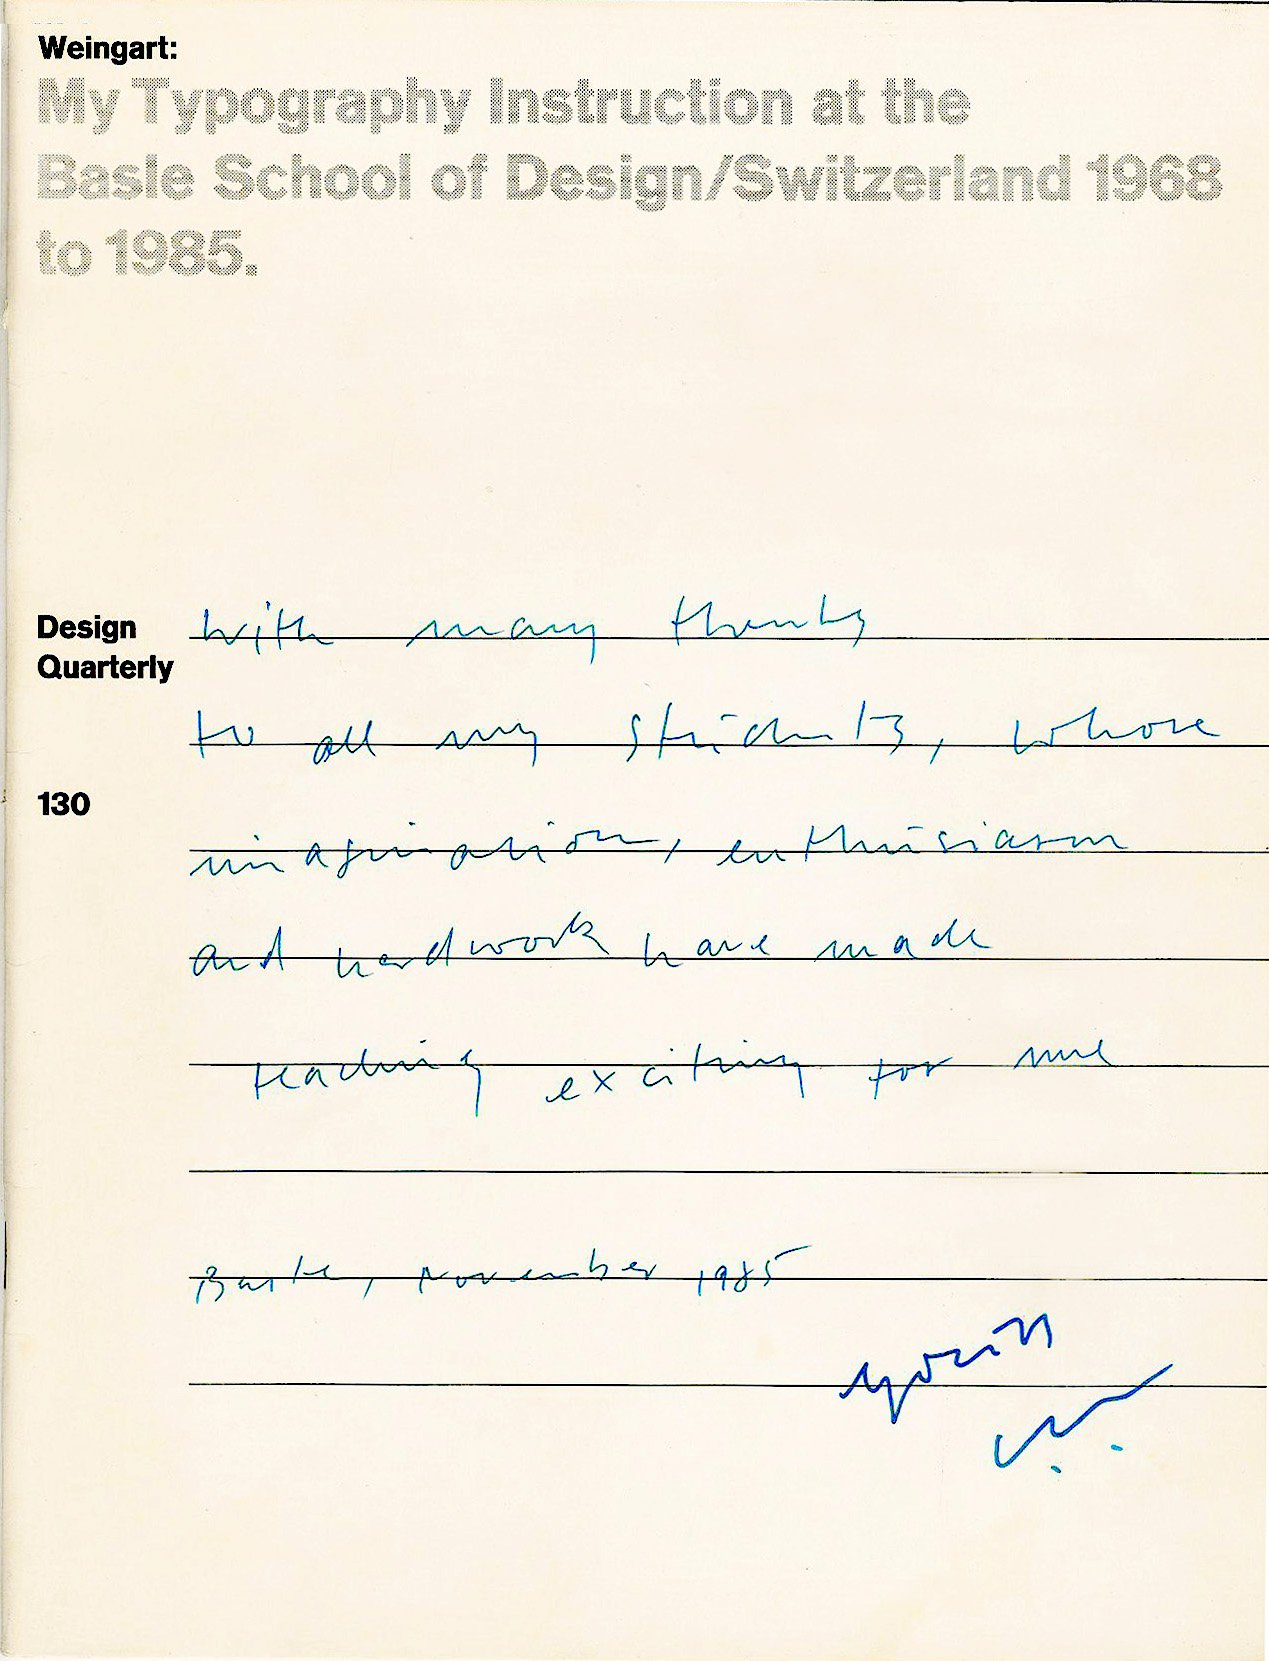 Weingart:
My Typography Instruction at the
Basle School of Design/Switzerland 1968
to 1985.
Design
Quarterly
130
With many thanks
to all my students, whose
imagination, enthusiasm
and hardwork have made
teaching exciting for me
Basle, November 1985